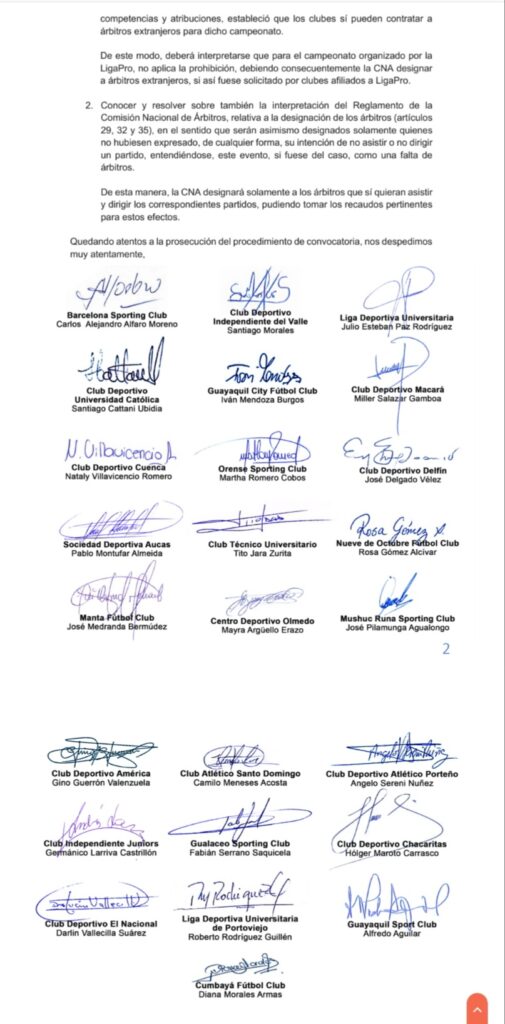 competencias y atribuciones, estableció que los clubes sí pueden contratar a
árbitros extranjeros para dicho campeonato.
De este modo, deberá interpretarse que para el campeonato organizado por la
LigaPro, no aplica la prohibición, debiendo consecuentemente la CNA designar
a árbitros extranjeros, si así fuese solicitado por clubes afiliados a LigaPro.
2. Conocer y resolver sobre también la interpretación del Reglamento de la
Comisión Nacional de Árbitros, relativa a la designación de los árbitros (artículos
29, 32 y 35), en el sentido que serán asimismo designados solamente quienes
no hubiesen expresado, de cualquier forma, su intención de no asistir o no dirigir
un partido, entendiéndose, este evento, si fuese del caso, como una falta de
árbitros.
De esta manera, la CNA designará solamente a los árbitros que sí quieran asistir
y dirigir los correspondientes partidos, pudiendo tomar los recaudos pertinentes
para estos efectos.
Quedando atentos a la prosecución del procedimiento de convocatoria, nos despedimos
muy atentamente,
Barcelona Sporting Club
Carlos Alejandro Alfaro Moreno
Club Deportivo
Independiente del Valle
Santiago Morales
Liga Deportiva Universitaria
Julio Esteban Paz Rodríguez
Club Deportivo
Universidad Católica
Santiago Cattani Ubidia
Guayaquil City Fútbol Club
Iván Mendoza Burgos
Club Deportivo Macará
Miller Salazar Gamboa
N. Villavicencio
Club Deportivo Cuenca
Nataly Villavicencio Romero
Orense Sporting Club
Martha Romero Cobos
Club Deportivo Delfín
José Delgado Vélez
Sociedad Deportiva Aucas
Pablo Montufar Almeida
Club Técnico Universitario
Tito Jara Zurita
Rosa Gómez A.
Nueve de Octubre Fútbol Club
Rosa Gómez Alcívar
Manta Fútbol Club
José Medranda Bermúdez
Centro Deportivo Olmedo
Mayra Argüello Erazo
Mushuc Runa Sporting Club
José Pilamunga Agualongo
2
Club Deportivo América
Gino Guerrón Valenzuela
Club Atlético Santo Domingo
Camilo Meneses Acosta
Club Deportivo Atlético Porteño
Angelo Sereni Nuñez
Club Independiente Juniors
Germánico Larriva Castrillón
Gualaceo Sporting Club
Fabián Serrano Saquicela
Club Deportivo Chacaritas
Hólger Maroto Carrasco
Club Deportivo El Nacional
Darlin Vallecilla Suárez
Liga Deportiva Universitaria
de Portoviejo
Roberto Rodríguez Guillén
Guayaquil Sport Club
Alfredo Aguilar
Cumbayá Fútbol Club
Diana Morales Armas